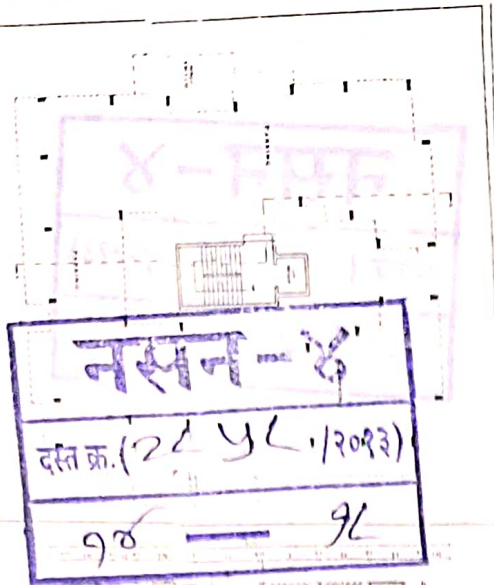 नसन-४
दस्त क्र. (२८५८./२०१३)
१४ — १८